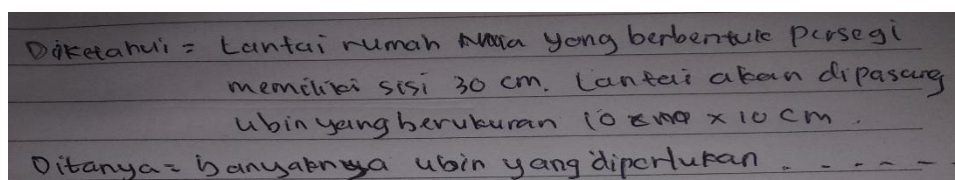 Diketahui = Lantai rumah yang berbentuk persegi
memiliki sisi 30 cm. Lantai akan dipasang
ubin yang berukuran 10 cm x 10 cm.
Ditanya = banyaknya ubin yang diperlukan . - - - -